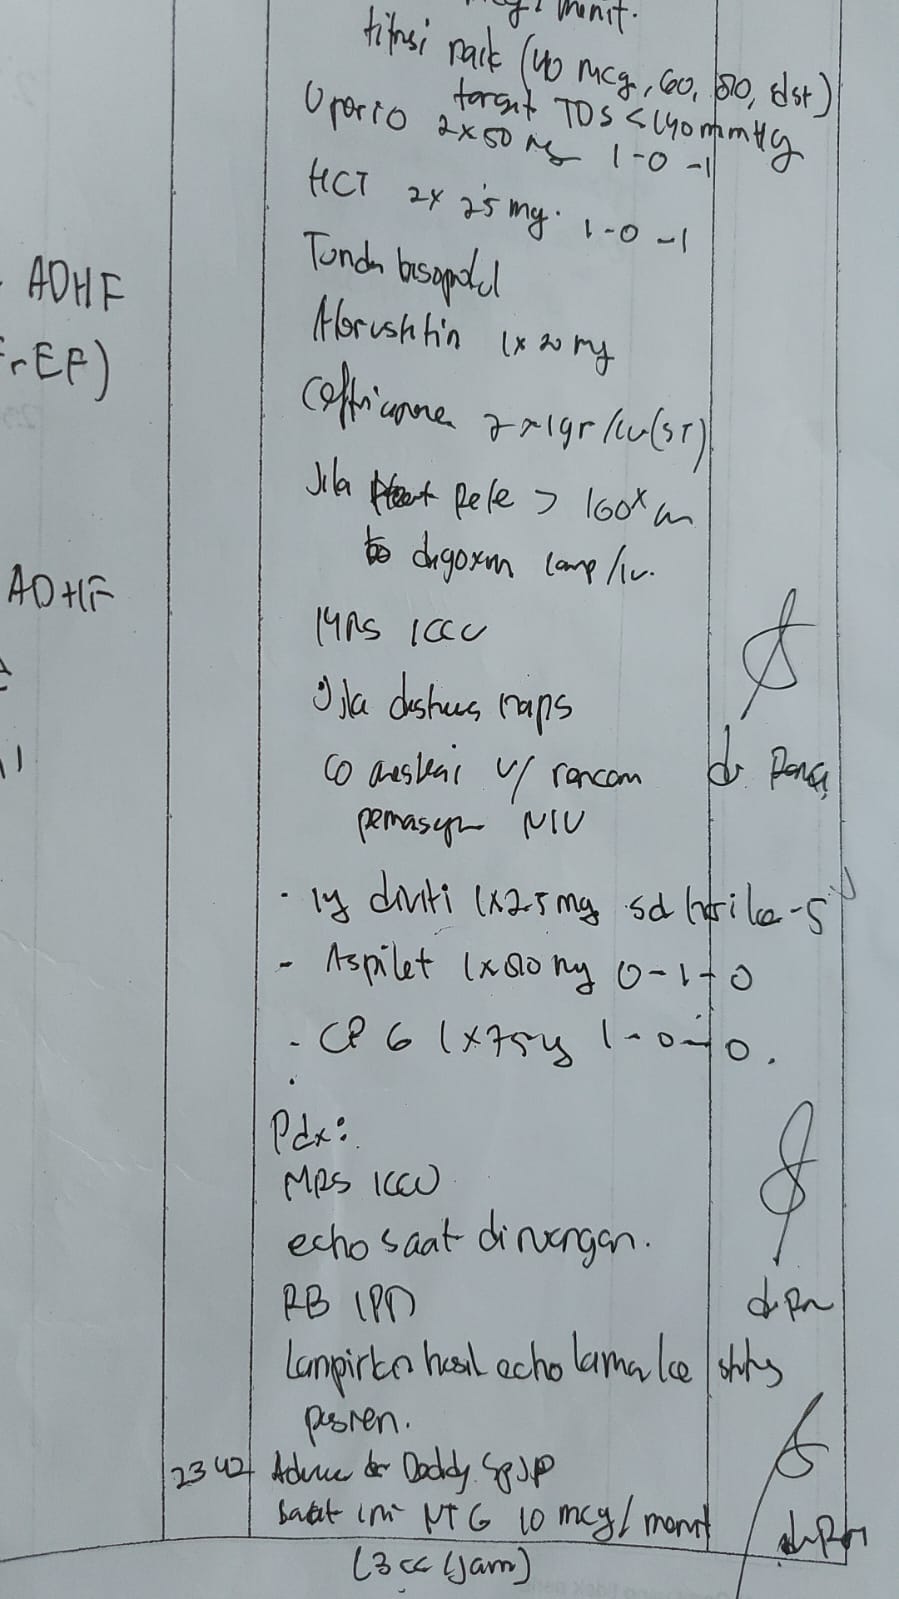 mcg/menit.
titrasi naik (40 mcg, 60, 80, dst)
target TDS < 140 mmHg
Uperio 2x50 mg 1-0-1
HCT 2x 25 mg. 1-0-1
ADHF
Tunda bisoprolol
Atorvastatin 1x20 mg
rEF)
Ceftriaxone 2x1gr/iv (ST)
Jika Rate > 160x/m
digoxin 1amp/iv.
ADHF
MRS ICCU
Jika distress naps
co anestesi u/ rencana
dr.
pemasangan NIV
- inj diviti 1x2.5 mg sd hari ke-5
- Aspilet 1x80 mg 0-1-0
- CPG 1x75 mg 1-0-0.
Pdx:
MRS ICCU
echo saat di ruangan.
RB IPD
Lampirkan hasil echo lama ke status
pasien.
2342 Advice dr Daddy SpJP
saat ini NTG 10 mcg/menit
(3 cc/jam)